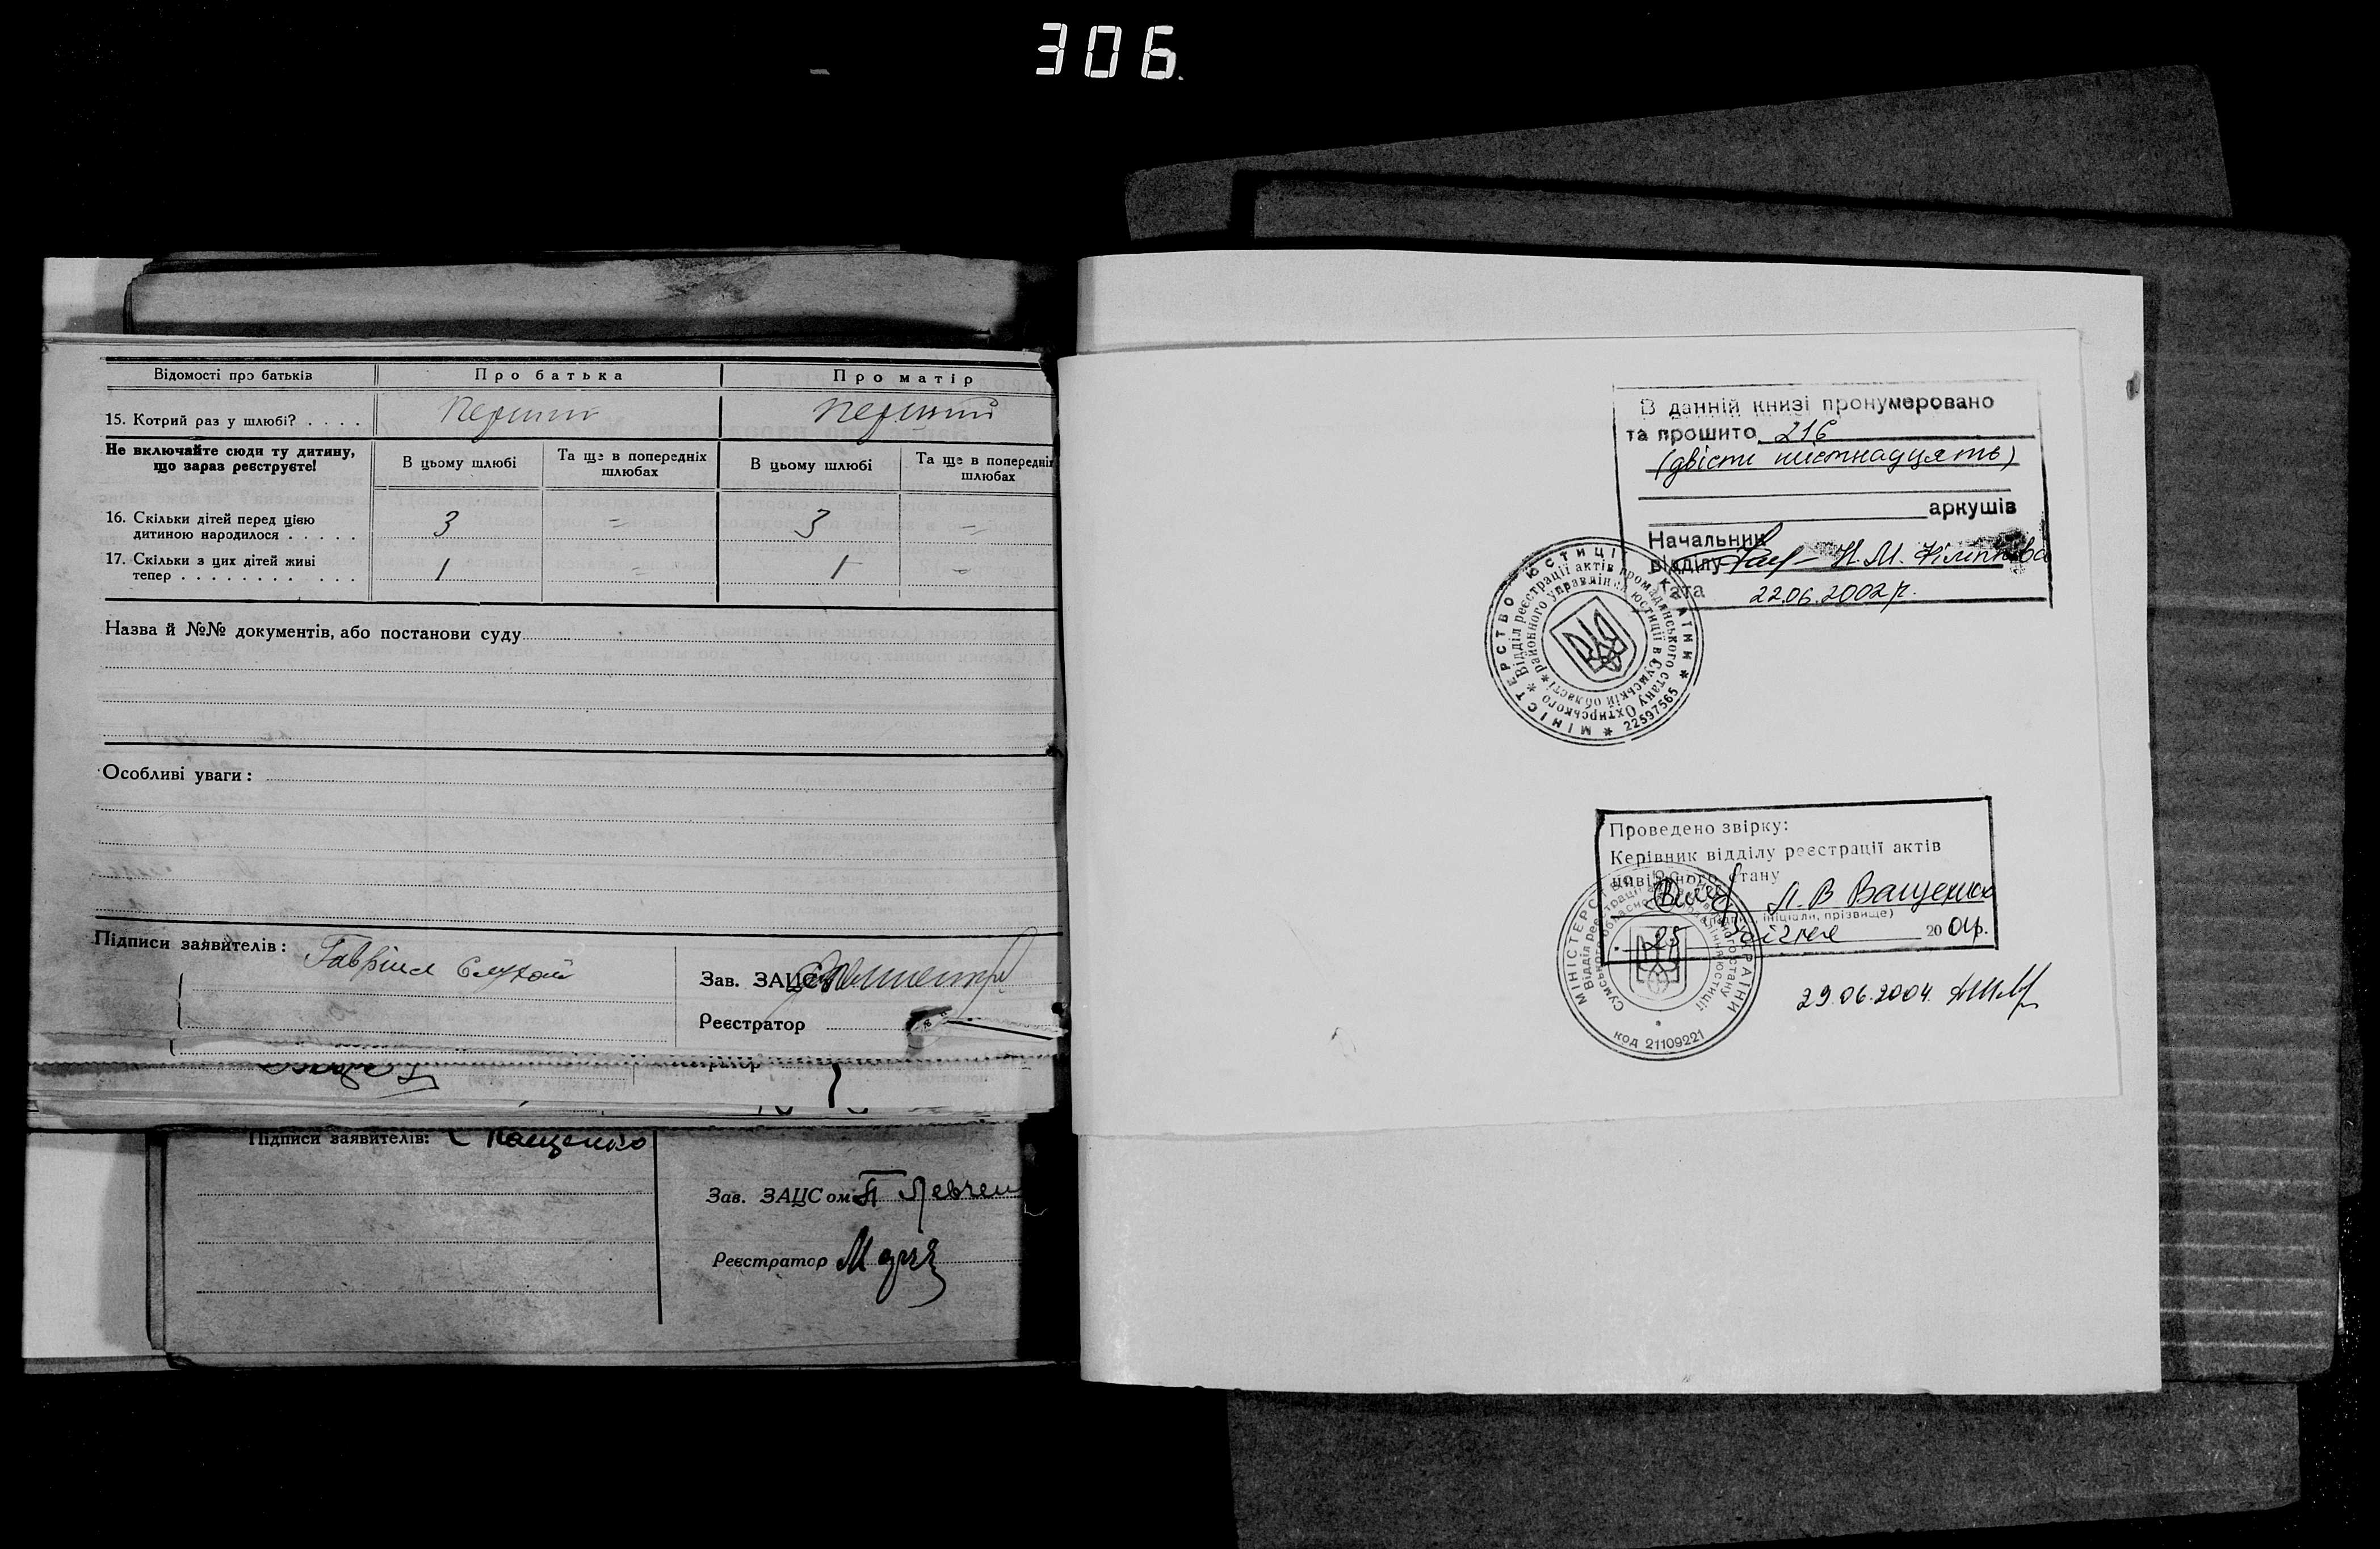 306.
Відомості про батьків
Про батька
Про матір
15. Котрий раз у шлюбі? . . . .
Перший
Перший
Не включайте сюди ту дитину,
що зараз реєструєте!
В цьому шлюбі
Та ще в попередніх
шлюбах
В цьому шлюбі
Та ще в попередніх
шлюбах
16. Скільки дітей перед цією
дитиною народилося . . . . .
3
=
3
=
17. Скільки з цих дітей живі
тепер . . . . . . . . . . .
1
=
1
=
Назва й №№ документів, або постанови суду
Особливі уваги:
Підписи заявителів:
Гавріил
Зав. ЗАЦС
Реєстратор
Підписи заявителів:
Зав. ЗАЦСом П Левчен
Реєстратор
В данній книзі пронумеровано
та прошито 216
(двісти шистнадцять)
аркушів
Начальник
відділу Н. М.
Дата 22.06.2002 р.
МІНІСТЕРСТВО ЮСТИЦІЇ УКРАЇНИ * 22597565 *
Відділ реєстрації актів громадянського стану Охтирського
районного управління юстиції в Сумській області *
Проведено звірку:
Керівник відділу реєстрації актів
цивільного стану
Л. В Ващенко
(підпис, ініціали, прізвище)
25 січня 2004р.
МІНІСТЕРСТВО ЮСТИЦІЇ УКРАЇНИ
Відділ реєстрації актів цивільного стану
Сумського обласного управління юстиції
код 21109221
29.06.2004.